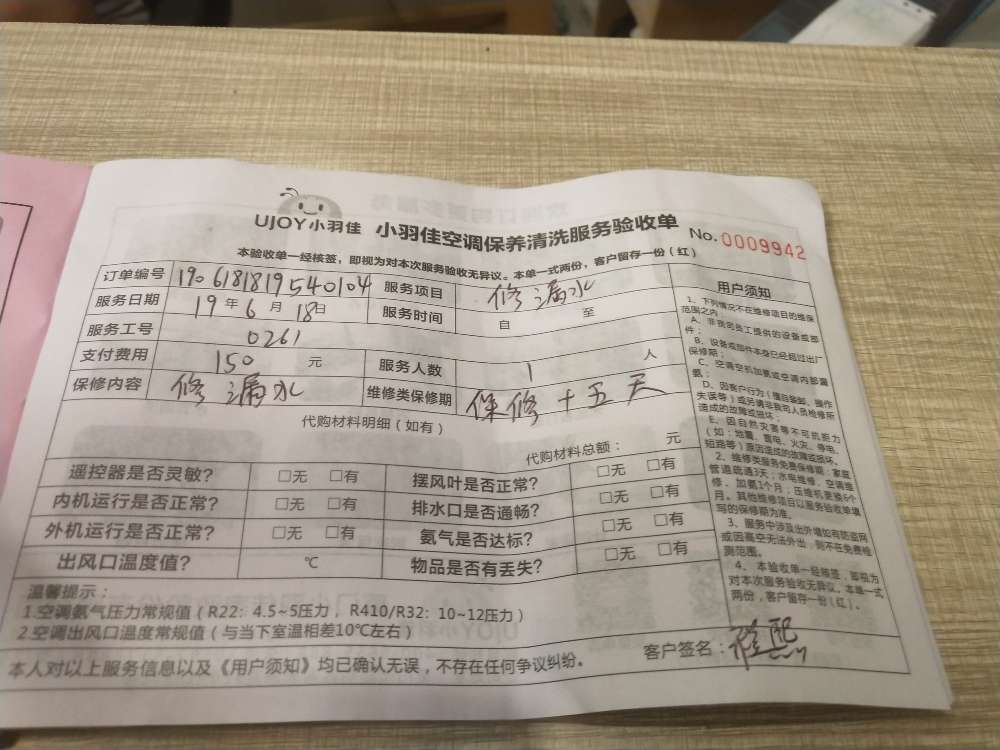 UJOY小羽佳 小羽佳空调保养清洗服务验收单 No.0009942
本验收单一经核签，即视为对本次服务验收无异议。本单一式两份，客户留存一份（红）
订单编号 190618181954 0104 服务项目 修漏水
服务日期 19年6月18日 服务时间 自 至
服务工号 0261
支付费用 150 元 服务人数 1 人
保修内容 修漏水 维修类保修期 保修十五天
代购材料明细（如有）
代购材料总额： 元
遥控器是否灵敏？ □无 □有 摆风叶是否正常？ □无 □有
内机运行是否正常？ □无 □有 排水口是否通畅？ □无 □有
外机运行是否正常？ □无 □有 氨气是否达标？ □无 □有
出风口温度值？ ℃ 物品是否有丢失？ □无 □有
温馨提示：
1.空调氨气压力常规值（R22：4.5~5压力， R410/R32：10~12压力）
2.空调出风口温度常规值（与当下室温相差10℃左右）
本人对以上服务信息以及《用户须知》均已确认无误，不存在任何争议纠纷。 客户签名：
用户须知
1、下列情况不在维修项目的维保
范围之内：
A、非我司员工提供的设备或部
件；
B、设备或部件本身已经超过出厂
保修期；
C、空调空机加氨或空调内部漏
氨；
D、因客户行为（擅自装卸、操作
失误等）或另请非我司人员检修所
造成的故障或损坏；
E、因自然灾害等不可抗拒力
（如：地震、雷电、火灾、停电、
短路等）原因造成的故障或损坏。
2、维修类服务免费保修期：家庭
管道疏通3天；水电维修、空调维
修、加氨1个月；压缩机更换6个
月。其他维修项目以服务验收单填
写的保修期为准。
3、服务中涉及出外墙如有防盗网
或因高空无法外出，则不在免费检
测范围。
4、本验收单一经核签，即视为
对本次服务验收无异议。本单一式
两份，客户留存一份（红）。